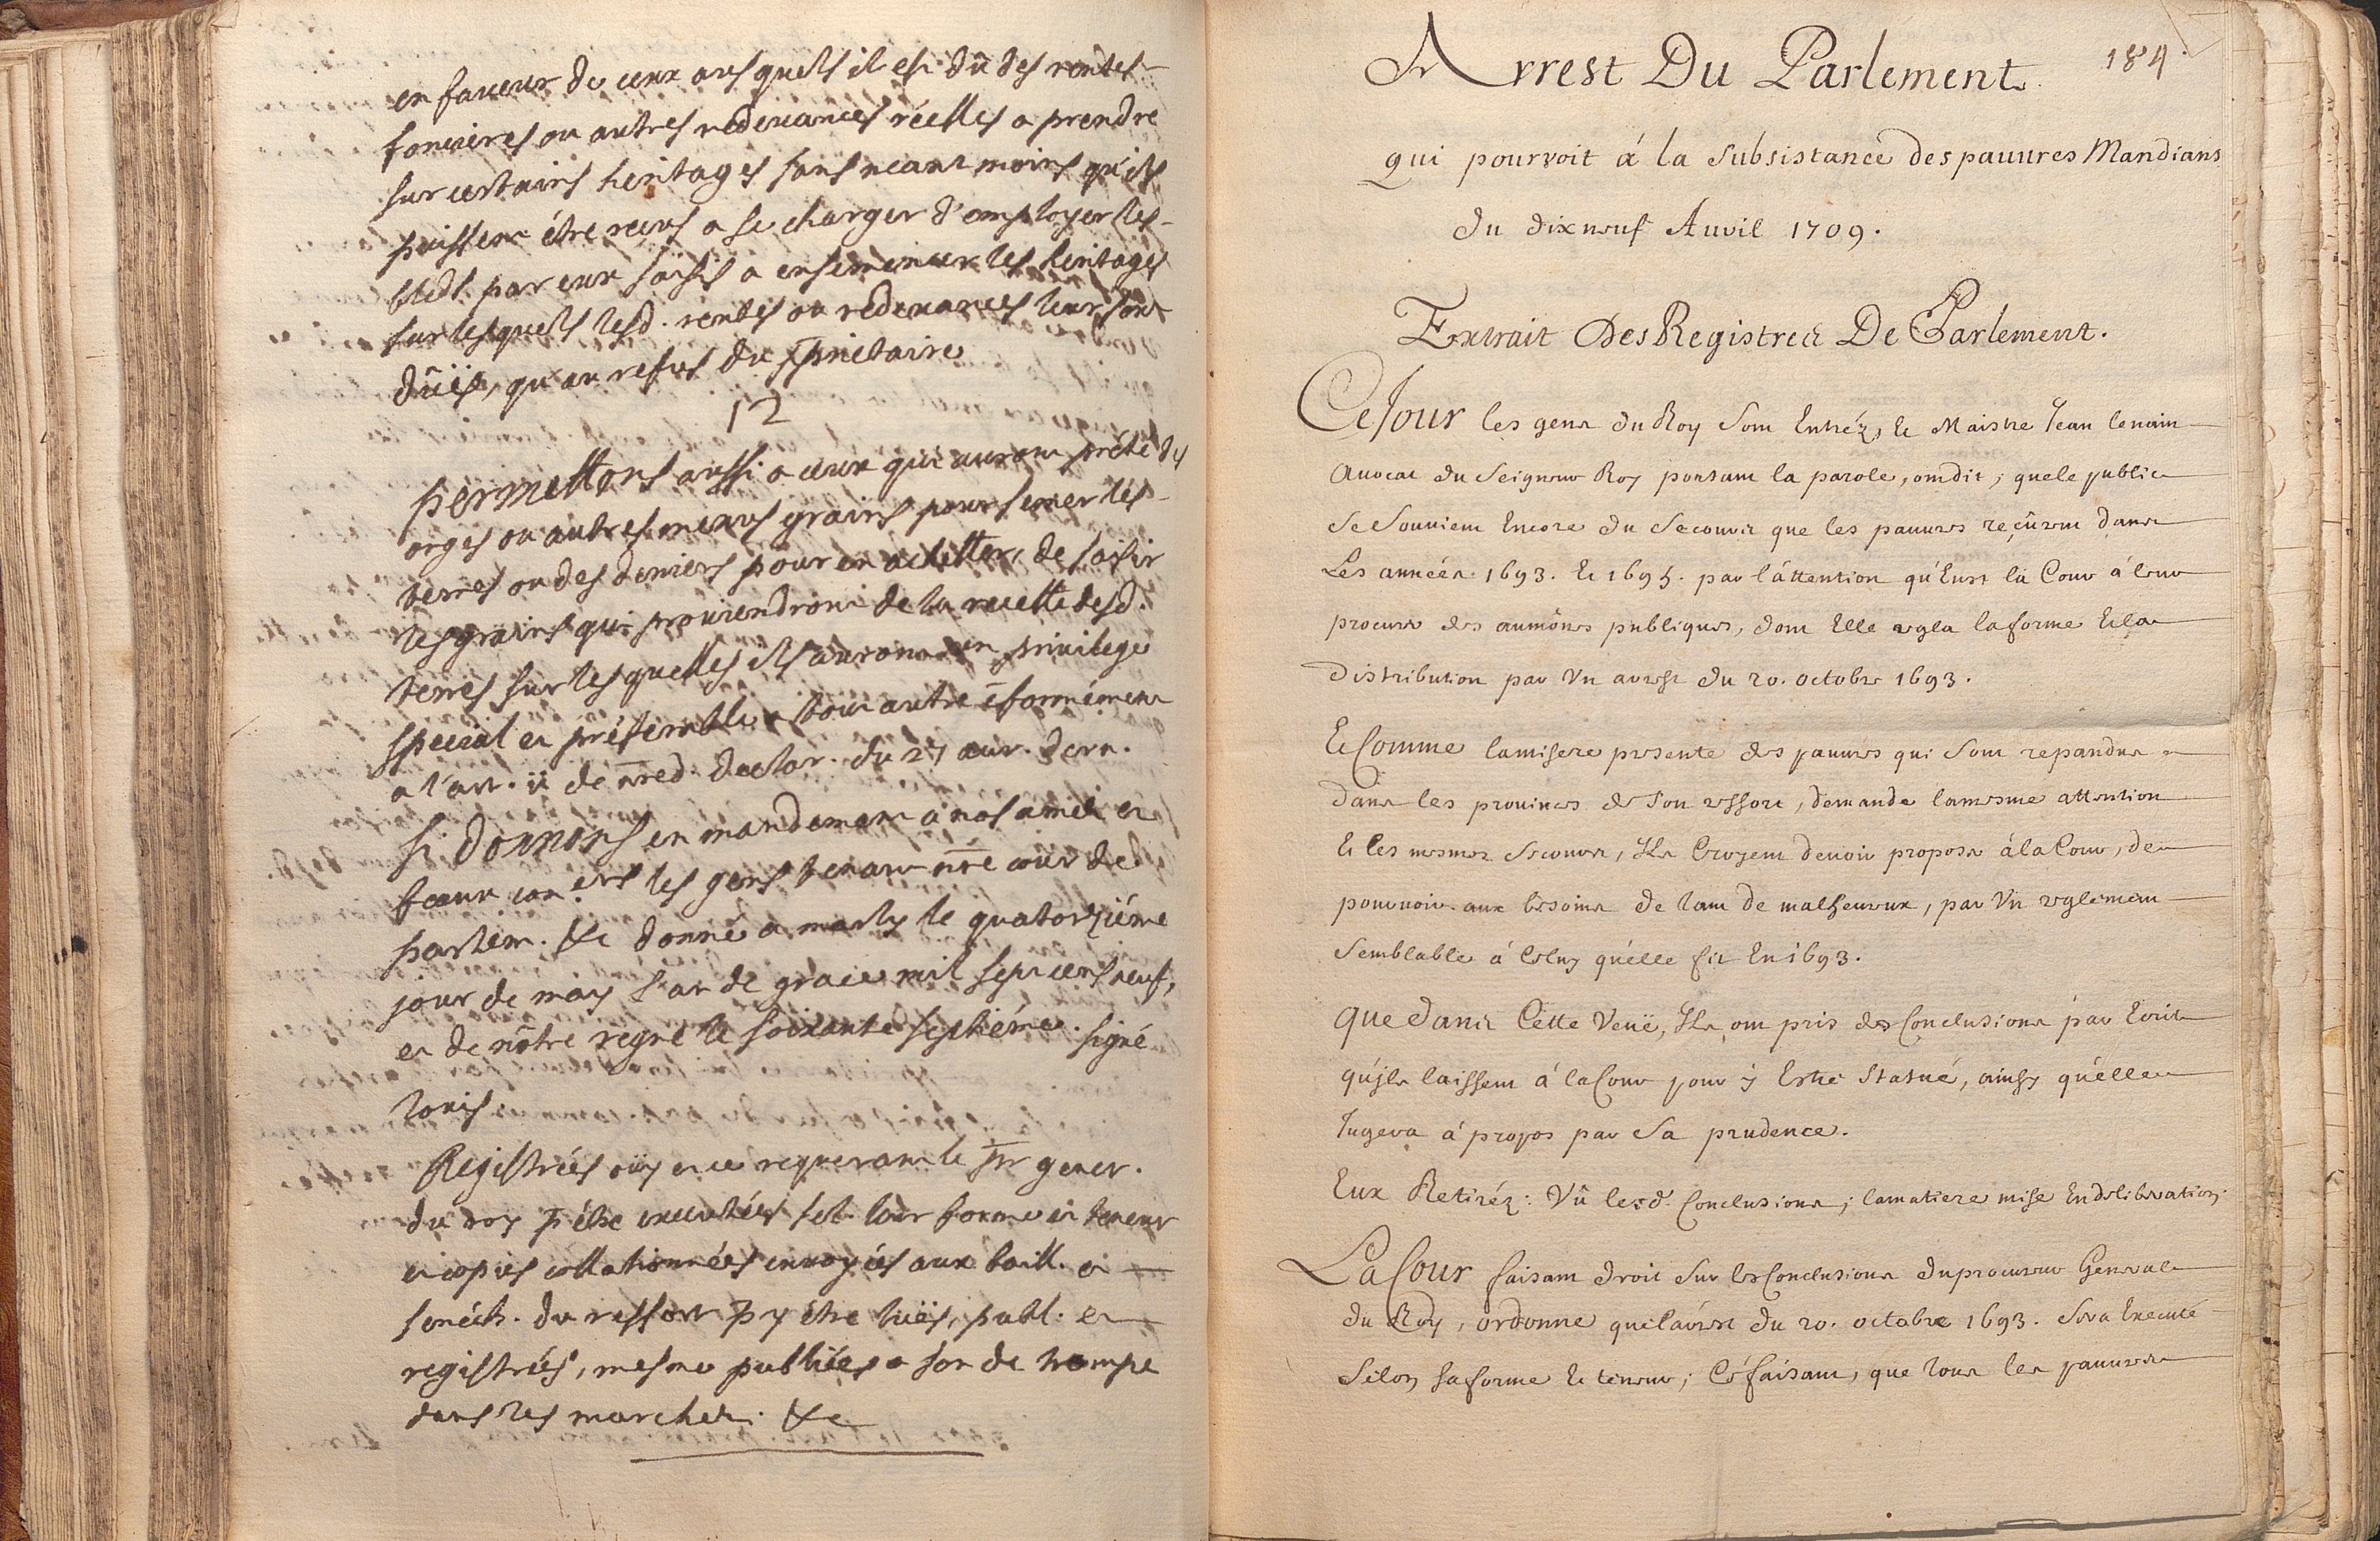 en faueur de ceux ausquels il est dû des rentes
foncieres ou autres redeuances réelles a prendre
sur certains heritages sans neantmoins qu'ils
puissent étre receus a se charger d'employer les
bleds par eux saisis a ensemencer les heritages
sur lesquels lesd. rentes ou redeuances leur sont
dûës, qu'au refus du pprietaire
12
permettons aussi a ceux qui auront prété des
orges ou autres menus grains pour semer les
terres ou des deniers pour en achetter, de saisir
les grains qui prouiendront de la recette desd.
terres sur lesquelles ils auront un priuilege
special et préferable a tout autre ēformément
a l'art. ii de nred. declar. du 27 aur. dern.
si donnons en mandement a nos amez et
feaux con.ers les gens tenant nre cour de
parlem. &c donné a marly le quatorziéme
jour de may l'an de grace mil sept cens neuf,
et de nôtre regne le soixante septiéme. signé
louis.
Registrées oüy et ce requerant le pr gener.
du roy p étre executées sel. leur forme et teneur
et copies collationnées enuoyées aux baill. et
senéch. du ressort p y étre lües, publ. et
registrées, mesme publiées a son de trompe
dans les marchez. &c
184.
Arrest Du Parlement.
qui pourvoit á la Subsistance des pauures Mandians
du dix neuf Auvil 1709.
Extrait Des Registres De Parlement.
Ce Jour les gens du Roy Sont Entréz, Et Maistre Jean lenain
Auocat du Seigneur Roy portant la parole, ont dit; que le public
Se Souuient Encore du Secours que les pauures reçûrent dans
Les années 1693. Et 1694. par l'áttention qu'Eust la Cour á leur
procurer des aumônes publiques, dont Elle regla la forme Et la
distribution par Vn arrest du 20. octobre 1693.
Et Comme la misere presente des pauures qui Sont repandus
dans les prouinces de Son ressort, demande la mesme attention
Et les mesmes Secours, Ils Croyent deuoir proposer á la Cour, de
pouruoir aux besoins de tant de malheureux, par Vn reglement
Semblable á Celuy qu'elle fit En 1693.
Que dans Cette Veuë, Ils ont pris des Conclusions par Ecrit
qu'jls laissent á la Cour pour y Estre Statué, ainsy qu'elle
Jugera á propos par Sa prudence.
Eux Retiréz: Vû lesd. Conclusions; la matiere mise En deliberation;
La Cour faisant droit Sur les Conclusions du procureur General
du Roy, ordonne que l'arrest du 20. octobre 1693. Sera Executé
Selon Sa forme Et teneur; Cé faisant, que tous les pauures